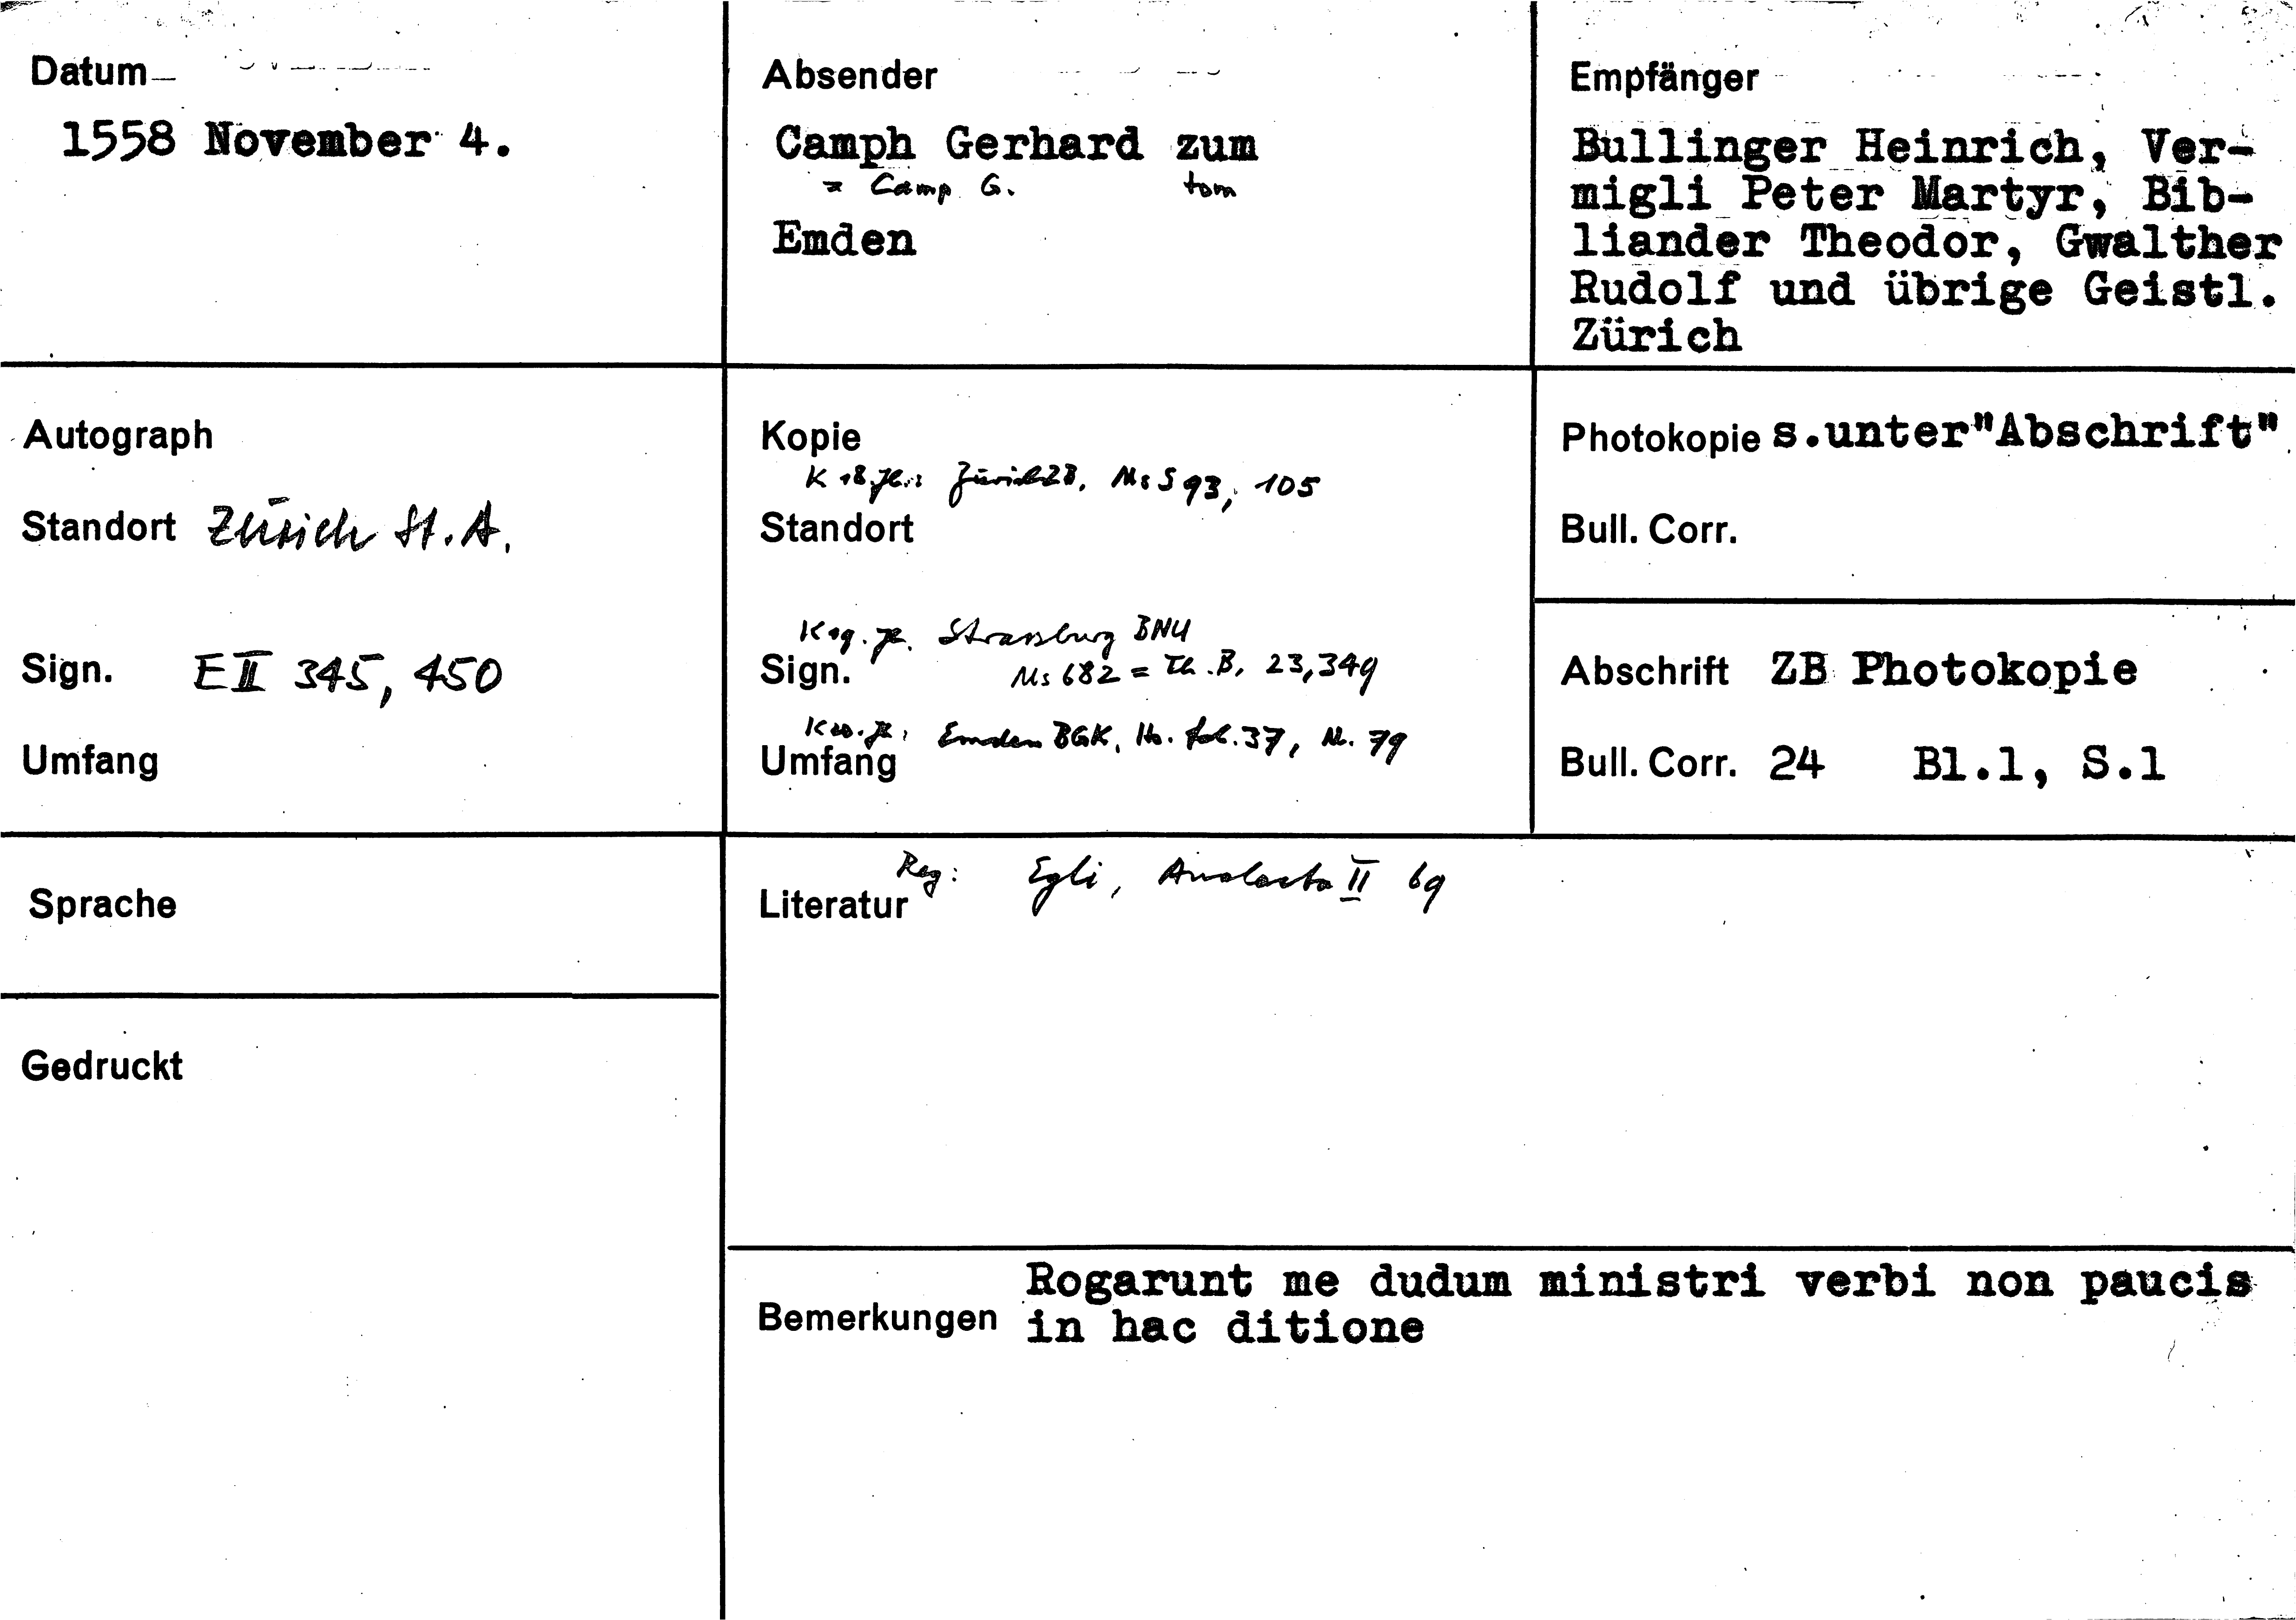 Datum
1558 November 4.
Absender
Camph Gerhard zum
= Camp G. tom
Emden
Empfänger
Bullinger Heinrich, Ver-
migli Peter Martyr, Bib-
liander Theodor, Gwalther
Rudolf und übrige Geistl.
Zürich
Autograph
Standort Zürich St. A.
Sign. E II 345, 450
Umfang
Kopie
K 18. Jh.: Zürich ZB, Ms S 93, 105
Standort
K 19. Jh. Strassburg BNU
Sign. Ms 682 = Th. B. 23, 349
K 20. Jh. Emden BGK, Hs. fol. 37, Nr. 79
Umfang
Photokopie s.unter"Abschrift"
Bull. Corr.
Abschrift ZB Photokopie
Bull. Corr. 24 Bl.1, S.1
Sprache
Gedruckt
Reg: Egli, Analecta II 69
Literatur
Rogarunt me dudum ministri verbi non paucis
Bemerkungen in hac ditione